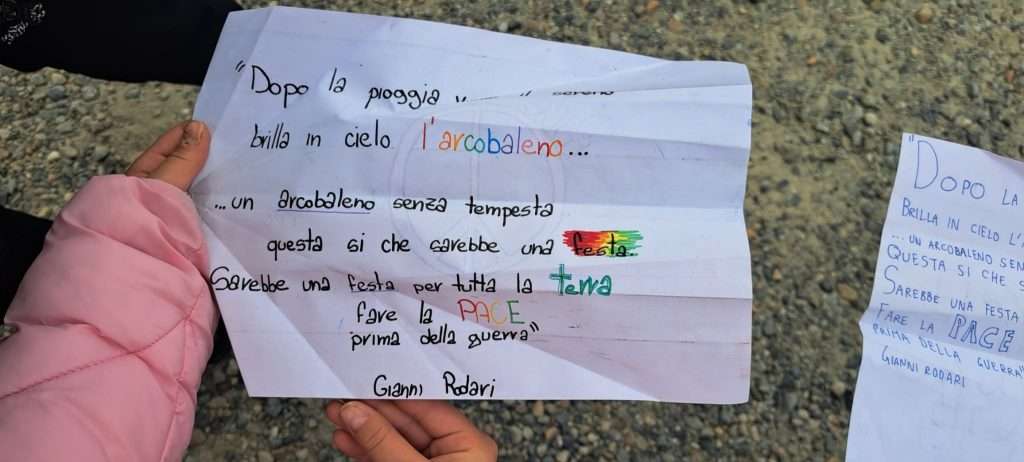 "Dopo la pioggia sereno
brilla in cielo l'arcobaleno...
...un arcobaleno senza tempesta
questa si che sarebbe una festa.
Sarebbe una festa per tutta la terra
fare la PACE
prima della guerra"
Gianni Rodari
"DOPO LA
BRILLA IN CIELO L'
...UN ARCOBALENO SEN
QUESTA SI CHE S
SAREBBE UNA FESTA
FARE LA PACE
PRIMA DELLA GUERRA"
GIANNI RODARI